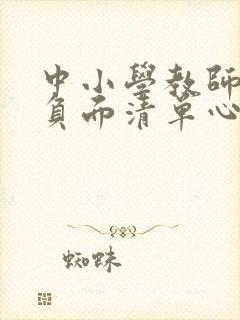 中小學教師
負面清單心
蜘蛛